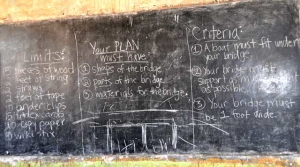 Limits:
pieces of wood
feet of string
straws
feet of tape
index cards
copy paper
Your PLAN
must have
① shape of the bridge
② parts of the bridge
③ materials for the bridge.
Criteria:
① A boat must fit under
your bridge.
② Your bridge must
support as
as possible.
③ Your bridge must
be 1 foot wide.